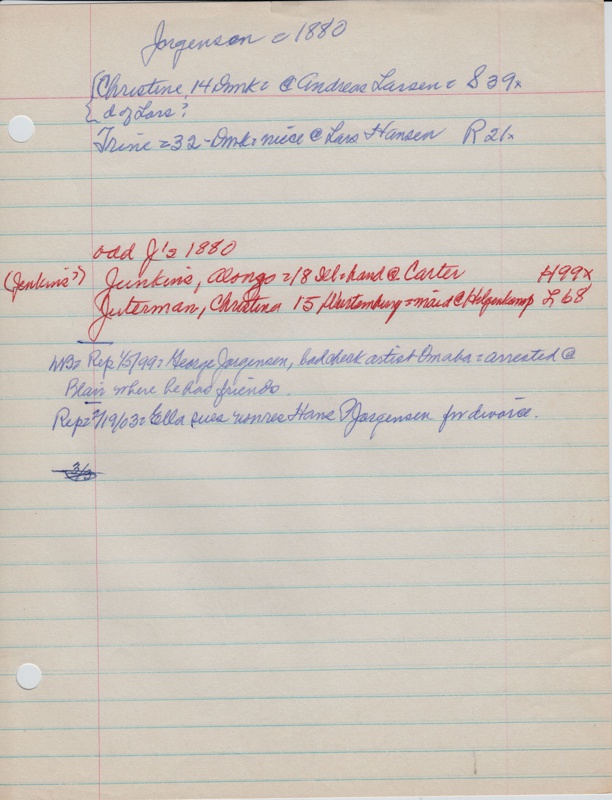 Jorgenson c 1880
{Christine, 14 Dmk = @ Andreas Larsen = S 39x
{ d of Lars?
Trine = 32 - Dmk = niece @ Lars Hansen R 21x
odd J's 1880
(Jenkins?) Junkins, Alongo = 18 Del = hand @ Carter H99x
Juterman, Christina 15 Wurtemburg = maid @ Helgenkamp L 68
WB = Rep 1/5/99 = George Jorgensen, bad check artist Omaha = arrested @
Blair where he had friends.
Rep = 2/19/03 = Ella sues nonres Hans Jorgensen for divorce.